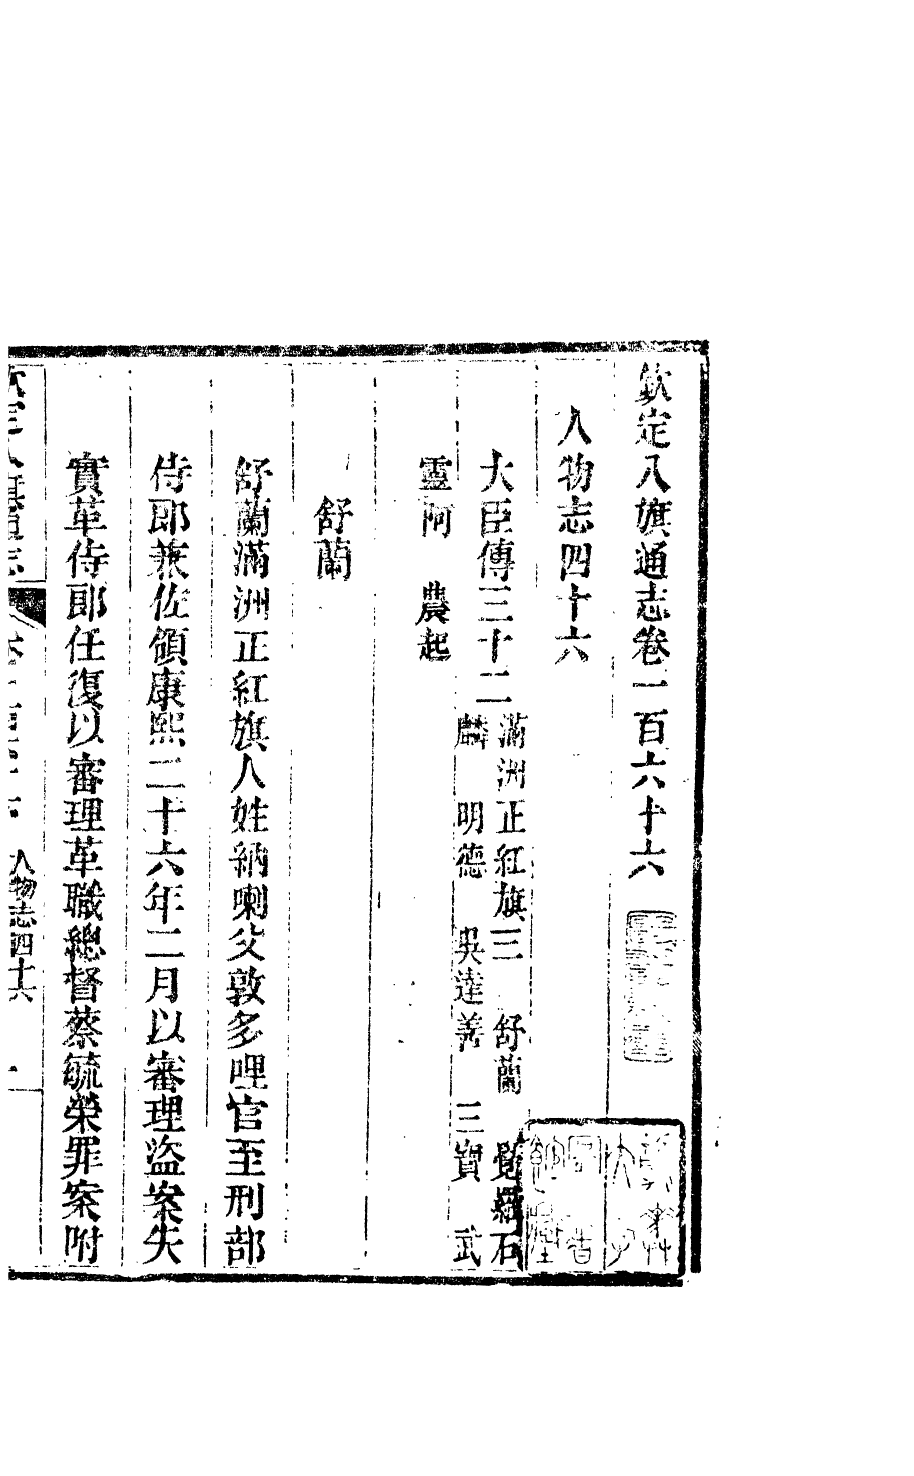 欽定八旗通志卷一百六十六
人物志四十六
大臣傳三十二
滿洲正紅旗三 舒蘭 覺羅石
麟 明德 吳達善 三寶 武
靈阿 農起
舒蘭
舒蘭滿洲正紅旗人姓納喇父敦多哩官至刑部
侍郎兼佐領康熙二十六年二月以審理盜案失
實革侍郎任復以審理革職總督蔡毓榮罪案附
人物志四十六